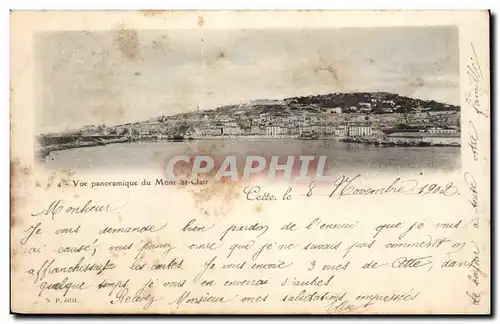 4 - Vue panoramique du Mont St-Clair
CPARAMA
Cette, le 8 Novembre 1902
Monsieur
Je vous demande bien pardon de l'ennui que je vous
ai causé, vous pensez que je ne savais pas comment on
affranchissait les cartes. Je vous envoie 3 vues de Cette, dans
quelque temps, je vous en enverrai d'autres.
Recevez Monsieur mes salutations empressées
N. P. édit.
famille